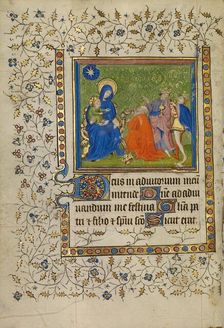 Deus in adiutorium meū
intende Dñe ad adiu
uandum me festina Glīa pa
tri et filio et spūi sco Sicut erat